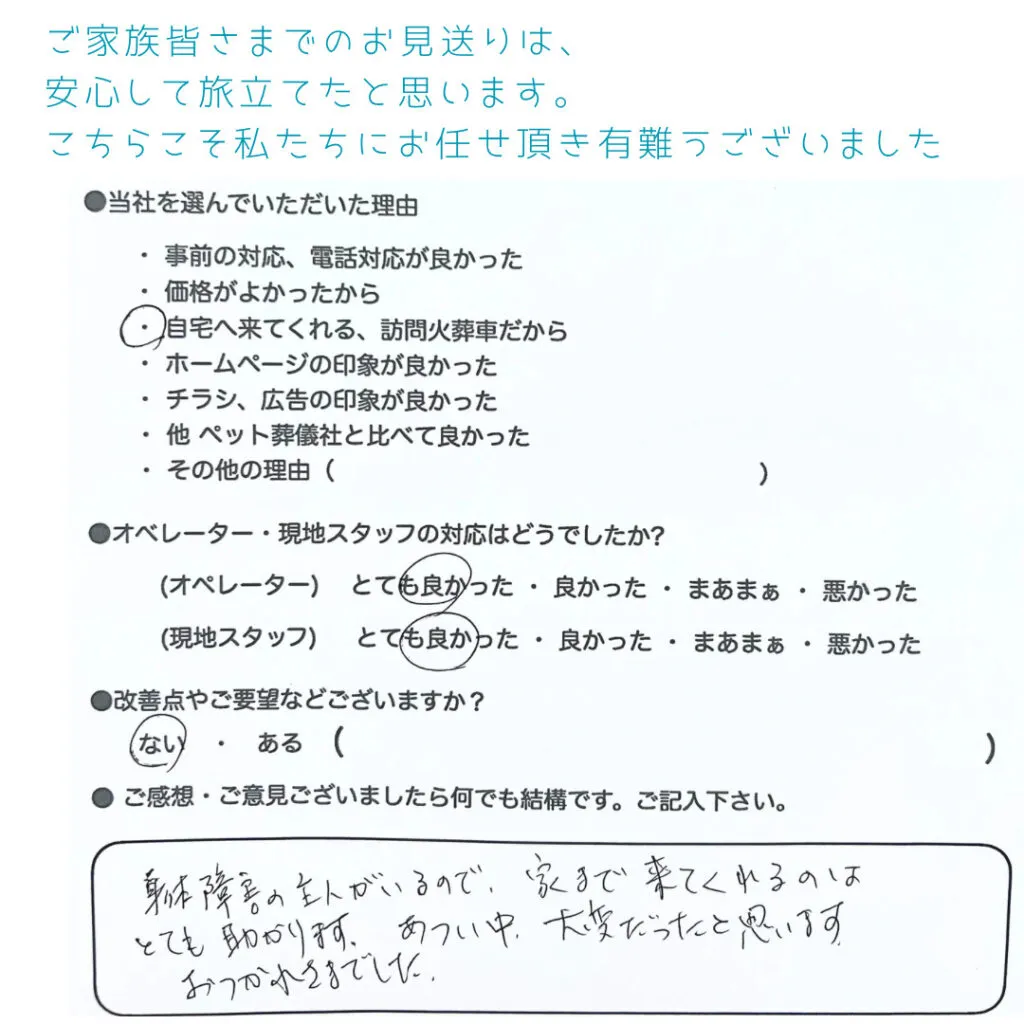 ご家族皆さまでのお見送りは、
安心して旅立てたと思います。
こちらこそ私たちにお任せ頂き有難うございました
●当社を選んでいただいた理由
・ 事前の対応、電話対応が良かった
・ 価格がよかったから
・ 自宅へ来てくれる、訪問火葬車だから
・ ホームページの印象が良かった
・ チラシ、広告の印象が良かった
・ 他 ペット葬儀社と比べて良かった
・ その他の理由（ ）
●オペレーター・現地スタッフの対応はどうでしたか?
(オペレーター) とても良かった ・ 良かった ・ まあまぁ ・ 悪かった
(現地スタッフ) とても良かった ・ 良かった ・ まあまぁ ・ 悪かった
●改善点やご要望などございますか？
ない ・ ある ( )
● ご感想・ご意見ございましたら何でも結構です。ご記入下さい。
身体障害の主人がいるので、家まで来てくれるのは
とても助かります。あつい中、大変だったと思います
おつかれさまでした。